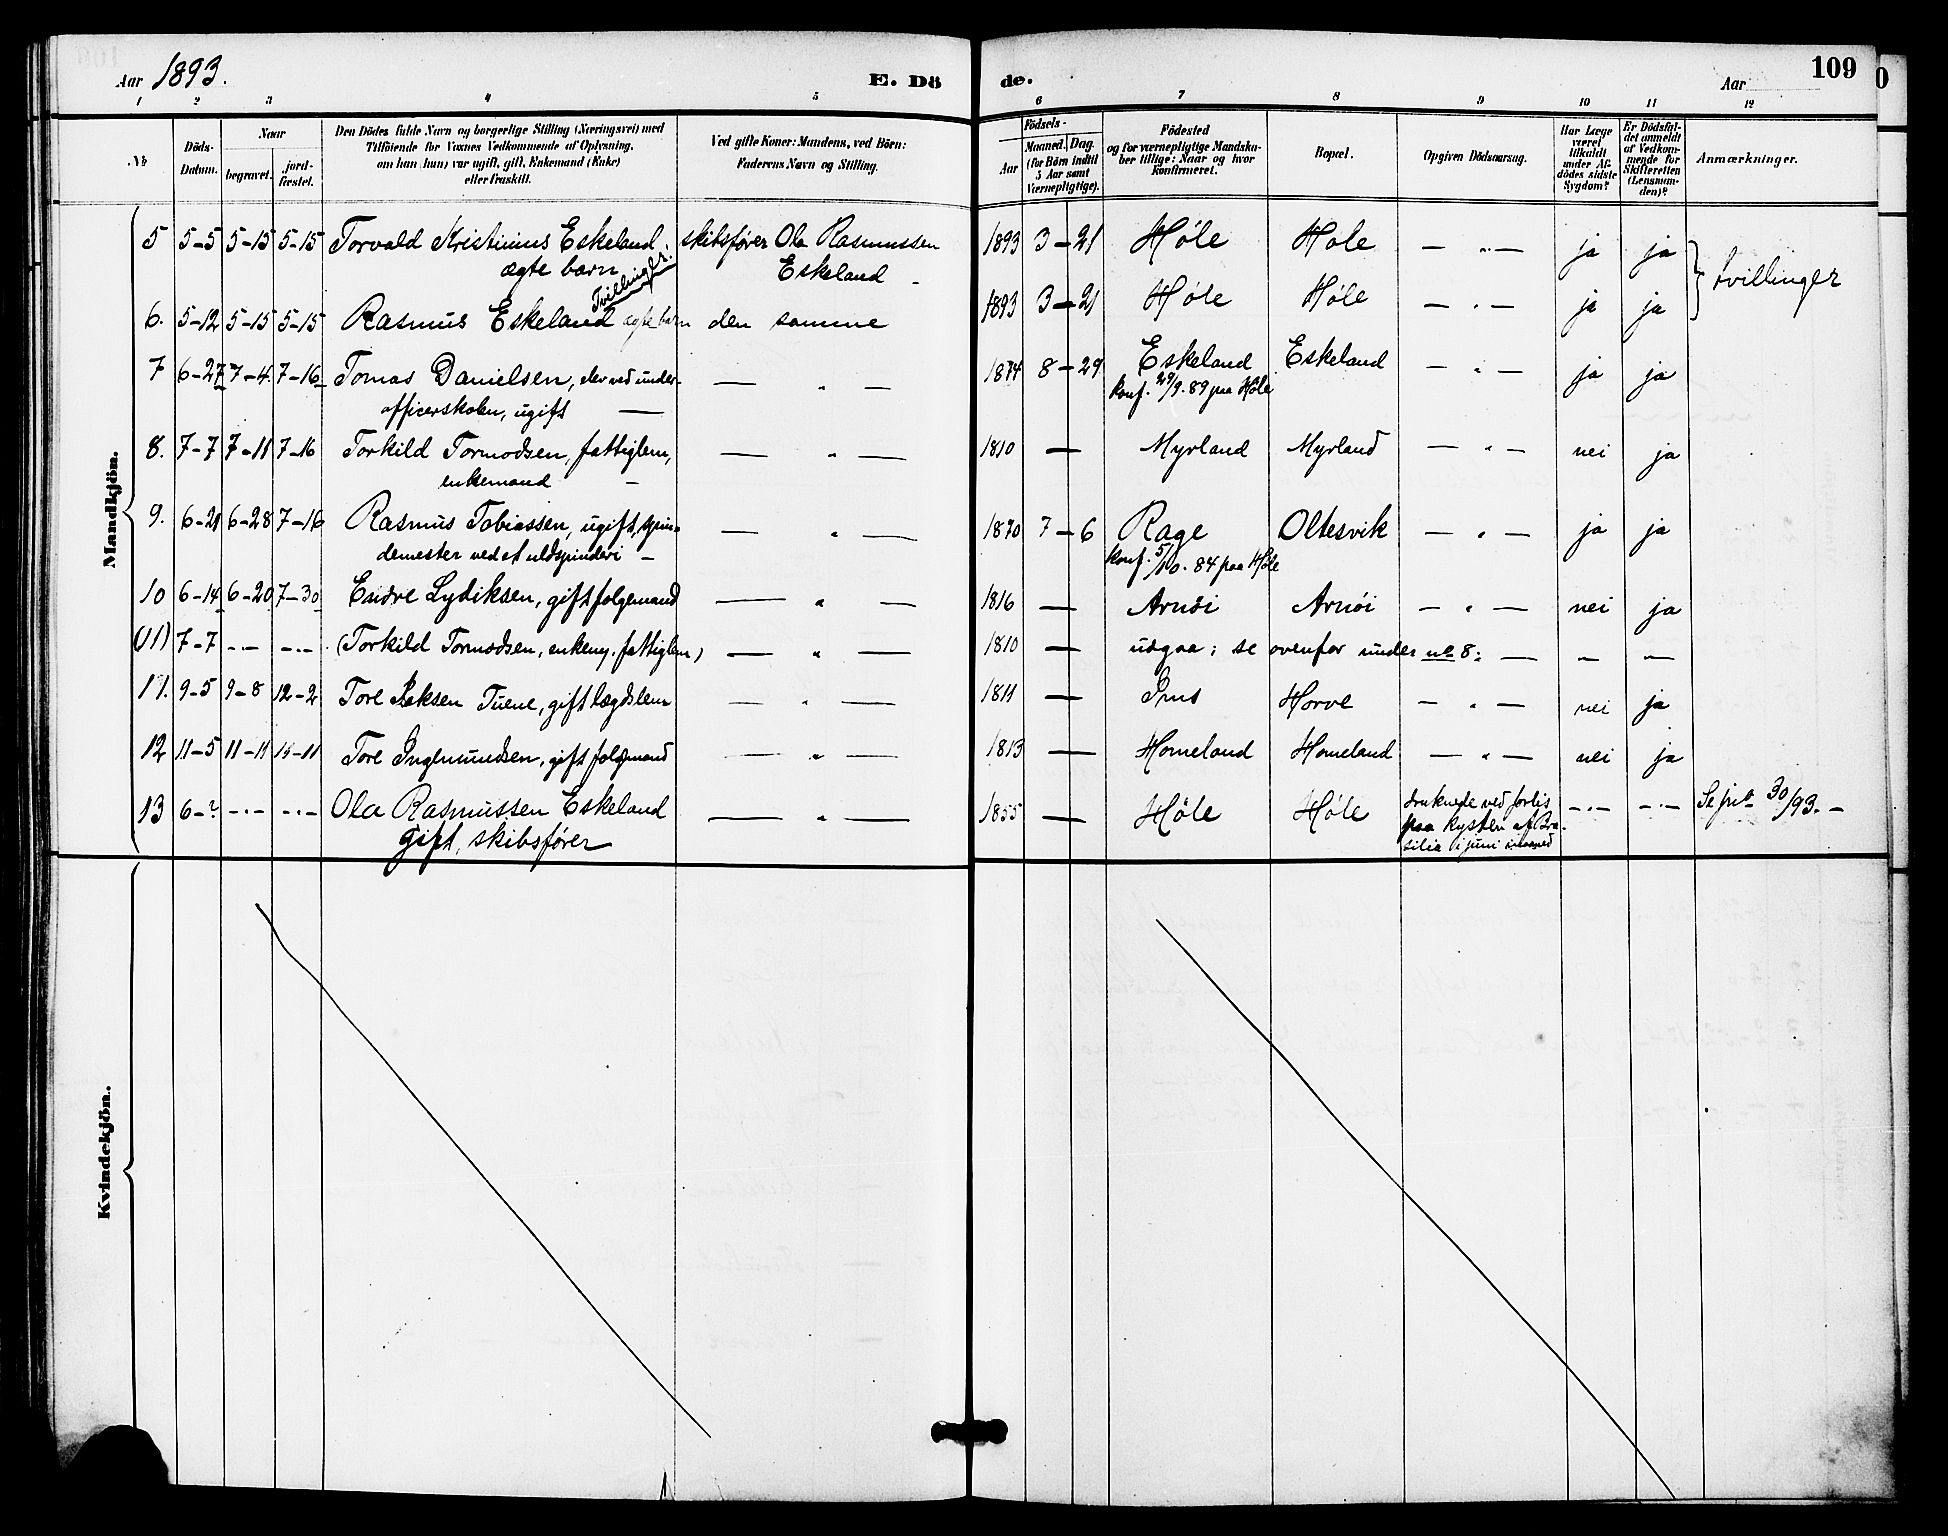 Aar 1893.
E. Dö
de.
Aar
109
1 2 3 4 5 6 7 8 9 10 11 12
No
Döds-Datum.
Naar
begravet.
jord-fæstet.
Den Dödes fulde Navn og borgerlige Stilling (Næringsvei) med
Tilföiende for Voxnes Vedkommende af Oplysning,
om han (hun) var ugift, gift, Enkemand (Enke)
eller fraskilt.
Ved gifte Koner: Mandens, ved Börn:
Faderens Navn og Stilling.
Födsels-
Aar
Maaned. Dag.
(for Börn indtil
5 Aar samt
Værnepligtige).
Födested
og for værnepligtige Mandska-
ber tillige: Naar og hvor
konfirmeret.
Bopæl.
Opgiven Dödsaarsag.
Har Læge
været
tilkaldt
under Af-
dödes sidste
Sygdom?
Er Dödsfal-
det anmeldt
af Vedkom-
mende for
Skifteretten
(Lensman-
den)?
Anmærkninger.
Mandkjön.
5 5-5 5-15 5-15 Torvald Kristinius Eskeland. skibsfører Ola Rasmussen 1893 3-21 Høle Høle — " — ja ja
ægte barn Tvillinger. Eskeland - tvillinger
6. 5-12 5-15 5-15 Rasmus Eskeland ægte barn den samme 1893 3-21 Høle Høle — " — ja ja
7 6-27 7-4 7-16 Tomas Danielsen, elev ved under- — " — 1874 8-29 Eskeland Eskeland — " — ja ja
officerskolen, ugift — konf. 29/9. 89 paa Høle
8. 7-7 7-11 7-16 Torkild Tormodsen, fattiglem, — " — 1810 — Myrland Myrland — " — nei ja
enkemand —
9. 6-21 6-28 7-16 Rasmus Tobiassen, ugift, spin- — " — 1870 7-6 Rage Oltesvik — " — ja ja
demester ved et uldspinderi — konf. 5/10. 84 paa Høle
10 6-14 6-20 7-30 Endre Lydiksen, gift folgemand — " — 1816 — Arnöi Arnöi — " — nei ja
(11) 7-7 -.- -.- (Torkild Tormodsen, enkem. fattiglem) — " — 1810 — udgaa; se ovenfor under no 8: — — —
11. 9-5 9-8 12-2 Tore Tuene, gift lægdslem — " — 1811 — Ims Horve — " — nei ja
12 11-5 11-11 11-11 Tore Ingemundsen, gift folgemand — " — 1813 — Homeland Homeland — " — nei ja
13 6-? -.- -.- Ola Rasmussen Eskeland — " — 1855 — Höle Höle druknede ved forlis -.- -.- Se 30/93. -
gift, skibsfører paa kysten af Bra-
silia i juni maaned
Kvindekjön.